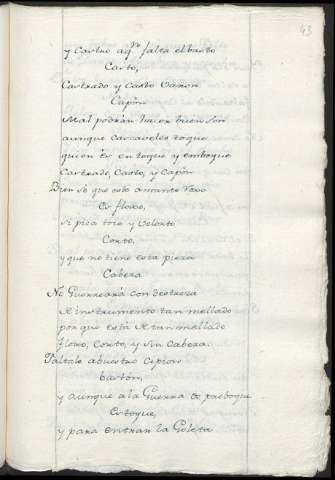 43
y Castro aqⁿ falta el basto
Casto,
Castrado y Casto Varon
Capón
Mal podrán hacer buen son
aunque Cascaveles toque
quien És en toque y emboque
Castrado, Casto, y Capón
Bien se que este amante
Es floxo,
si pica toro y
Corto,
y que no tiene esta pieza
Cabeza
No Guerreará con destreza
Instrumento tan mellado
por que está tan mellado
Floxo, Corto, y sin Cabeza
Faltale a buestro Cipion
baston,
y aunque a la Guerra
Estoque,
y para entrar la Goleta